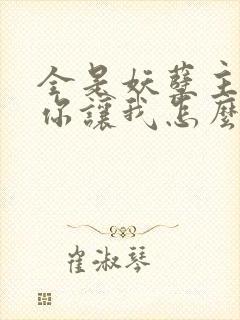 全是妖孽主
你讓我怎麼
崔淑琴